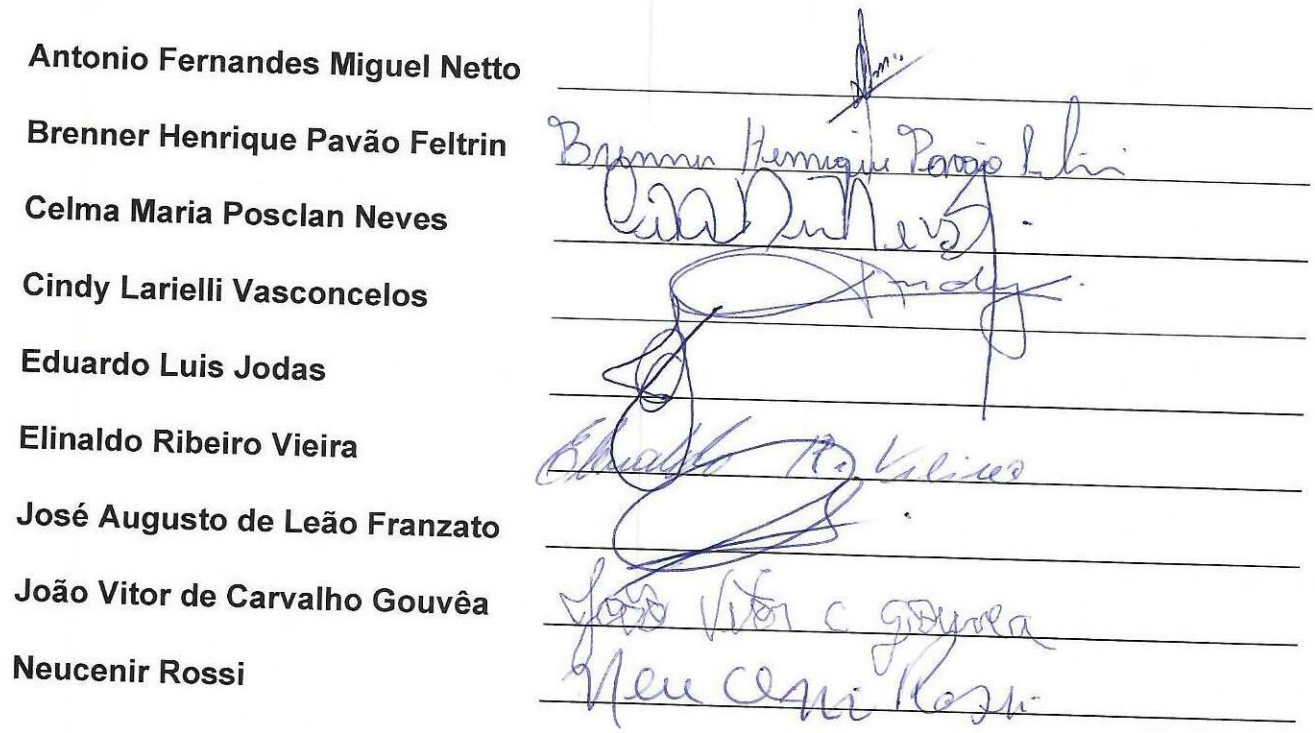 Antonio Fernandes Miguel Netto
Brenner Henrique Pavão Feltrin Brenner Henrique Pavão
Celma Maria Posclan Neves Neves
Cindy Larielli Vasconcelos Cindy
Eduardo Luis Jodas
Elinaldo Ribeiro Vieira Elinaldo R. Vieira
José Augusto de Leão Franzato
João Vitor de Carvalho Gouvêa João Vitor C Gouvea
Neucenir Rossi Neucenir Rossi